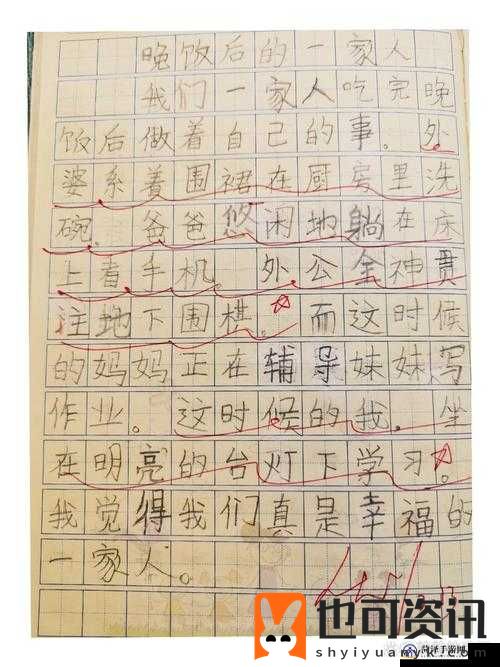 晚饭后的一家人
我们一家人吃完晚
饭后做着自己的事。外
婆系着围裙在厨房里洗
碗。爸爸悠闲地躺在床
上看手机。外公全神贯
注地下围棋。而这时候
的妈妈正在辅导妹妹写
作业。这时候的我，坐
在明亮的台灯下学习。
我觉得我们真是幸福的
一家人。
也可资讯
shyiyuamyk.com